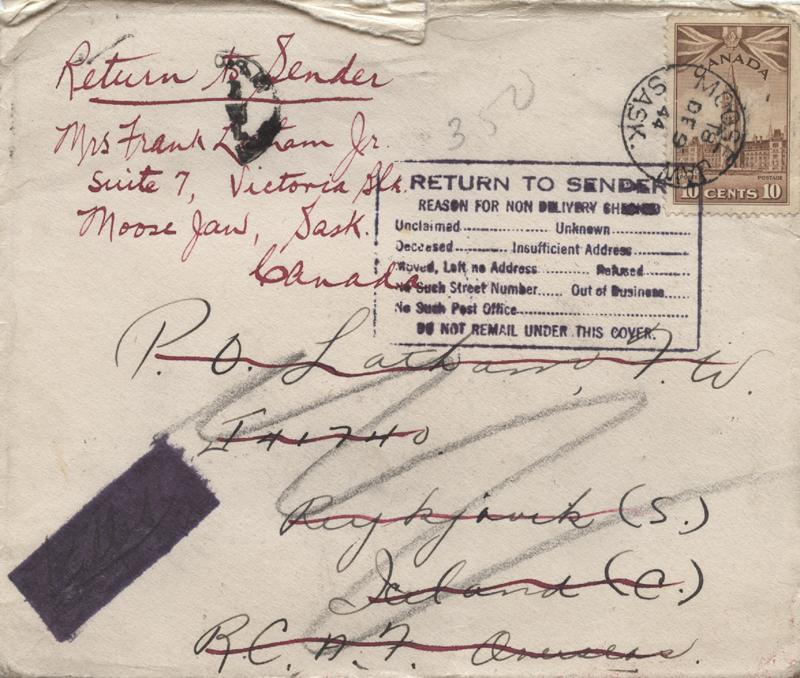 Return to Sender
Mrs Frank Latham Jr.
Suite 7, Victoria Blk.
Moose Jaw, Sask.
Canada
350
CANADA
POSTAGE
10 CENTS 10
MOOSE JAW
18
DE 9
44
SASK.
RETURN TO SENDER
REASON FOR NON DELIVERY CHECKED
Unclaimed.................... Unknown....................
Deceased............ Insufficient Address............
Moved, Left no Address.......... Refused..........
No Such Street Number...... Out of Business......
No Such Post Office..............................
DO NOT REMAIL UNDER THIS COVER.
P.O. Latham, F. W.
Reykjavik (S.)
Iceland (C.)
R.C.A.F. Overseas.